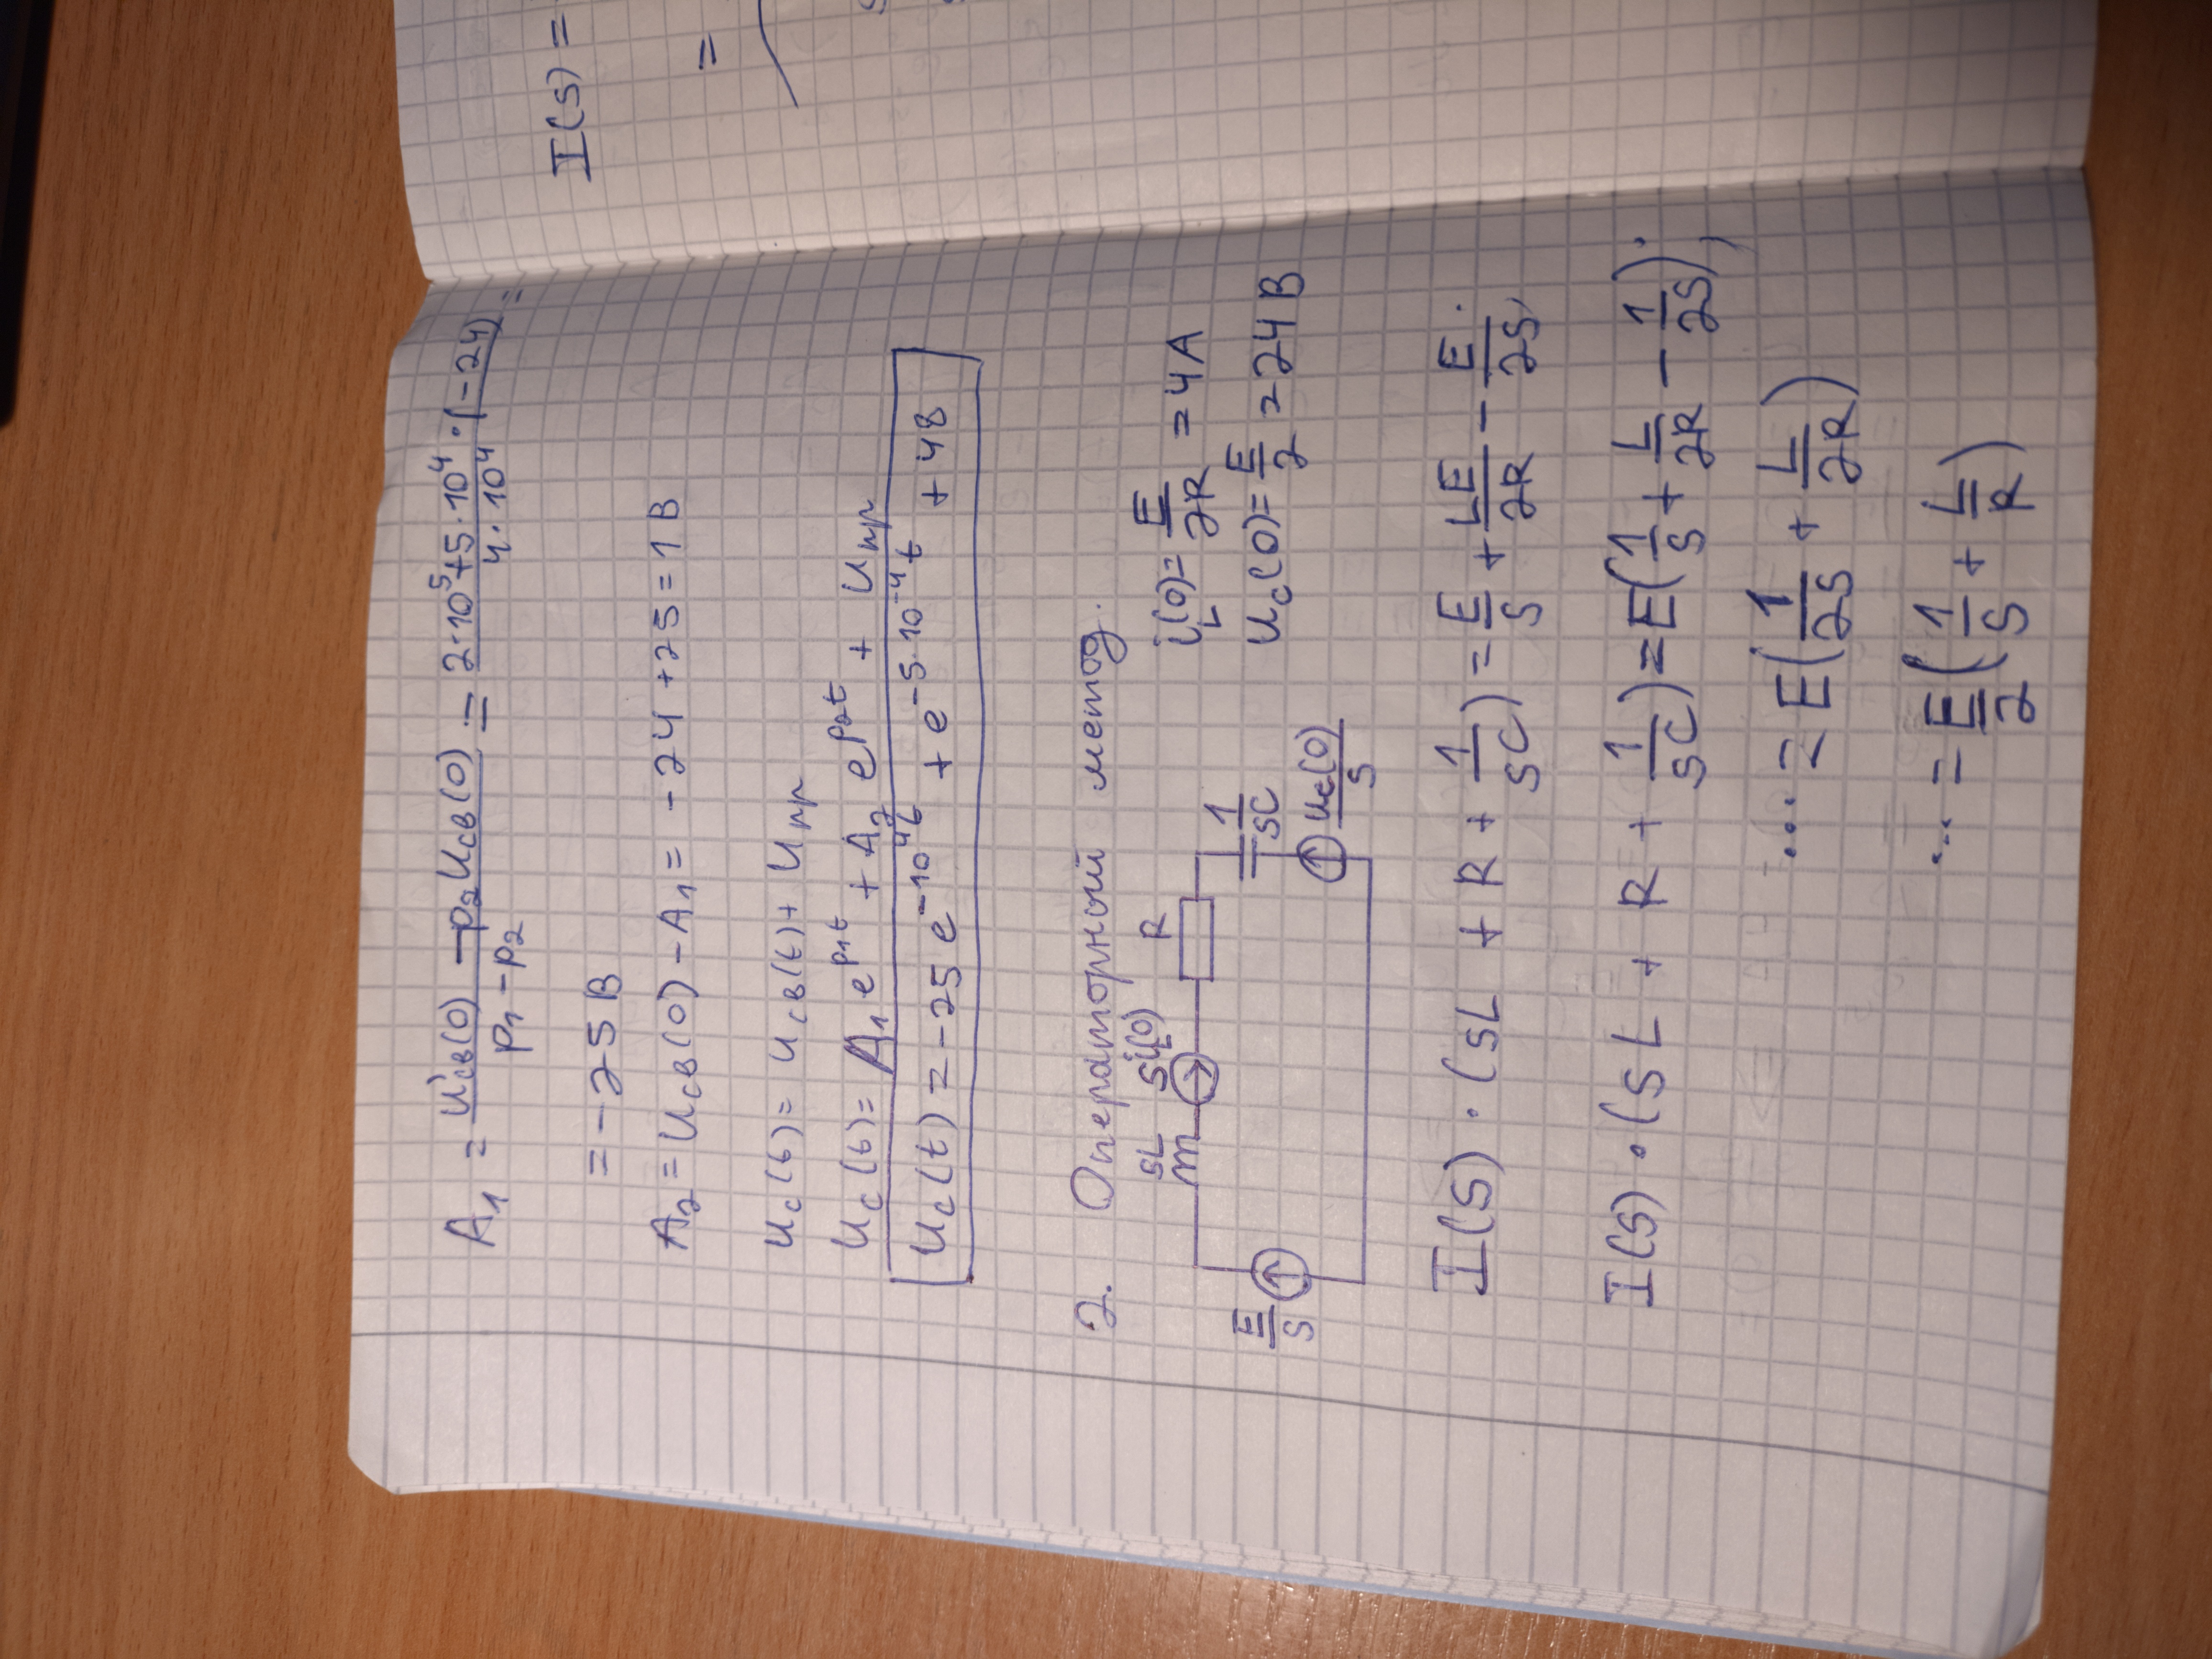 A₁ = (u'св(0) − p₂uсв(0)) / (p₁ − p₂) = (2·10⁵ + 5·10⁴·(−24)) / (4·10⁴) =
= −25 В
A₂ = uсв(0) − A₁ = −24 + 25 = 1 В
uс(t) = uсв(t) + uпр
uс(t) = A₁e^(p₁t) + A₂ e^(p₂t) + uпр
uс(t) = −25 e^(−10⁴t) + e^(−5·10⁻⁴t) + 48
2. Операторный метод.
sL
R
iL(0) = E/2R = 4 А
E/s
1/sC
uc(0) = E/2 = 24 В
uc(0)/s
I(s) · (sL + R + 1/sC) = E/s + LE/2R − E/2s
I(s) · (sL + R + 1/sC) = E(1/s + L/2R − 1/2s);
... = E(1/2s + L/2R)
... = E/2 (1/s + L/R)
I(s) =
=